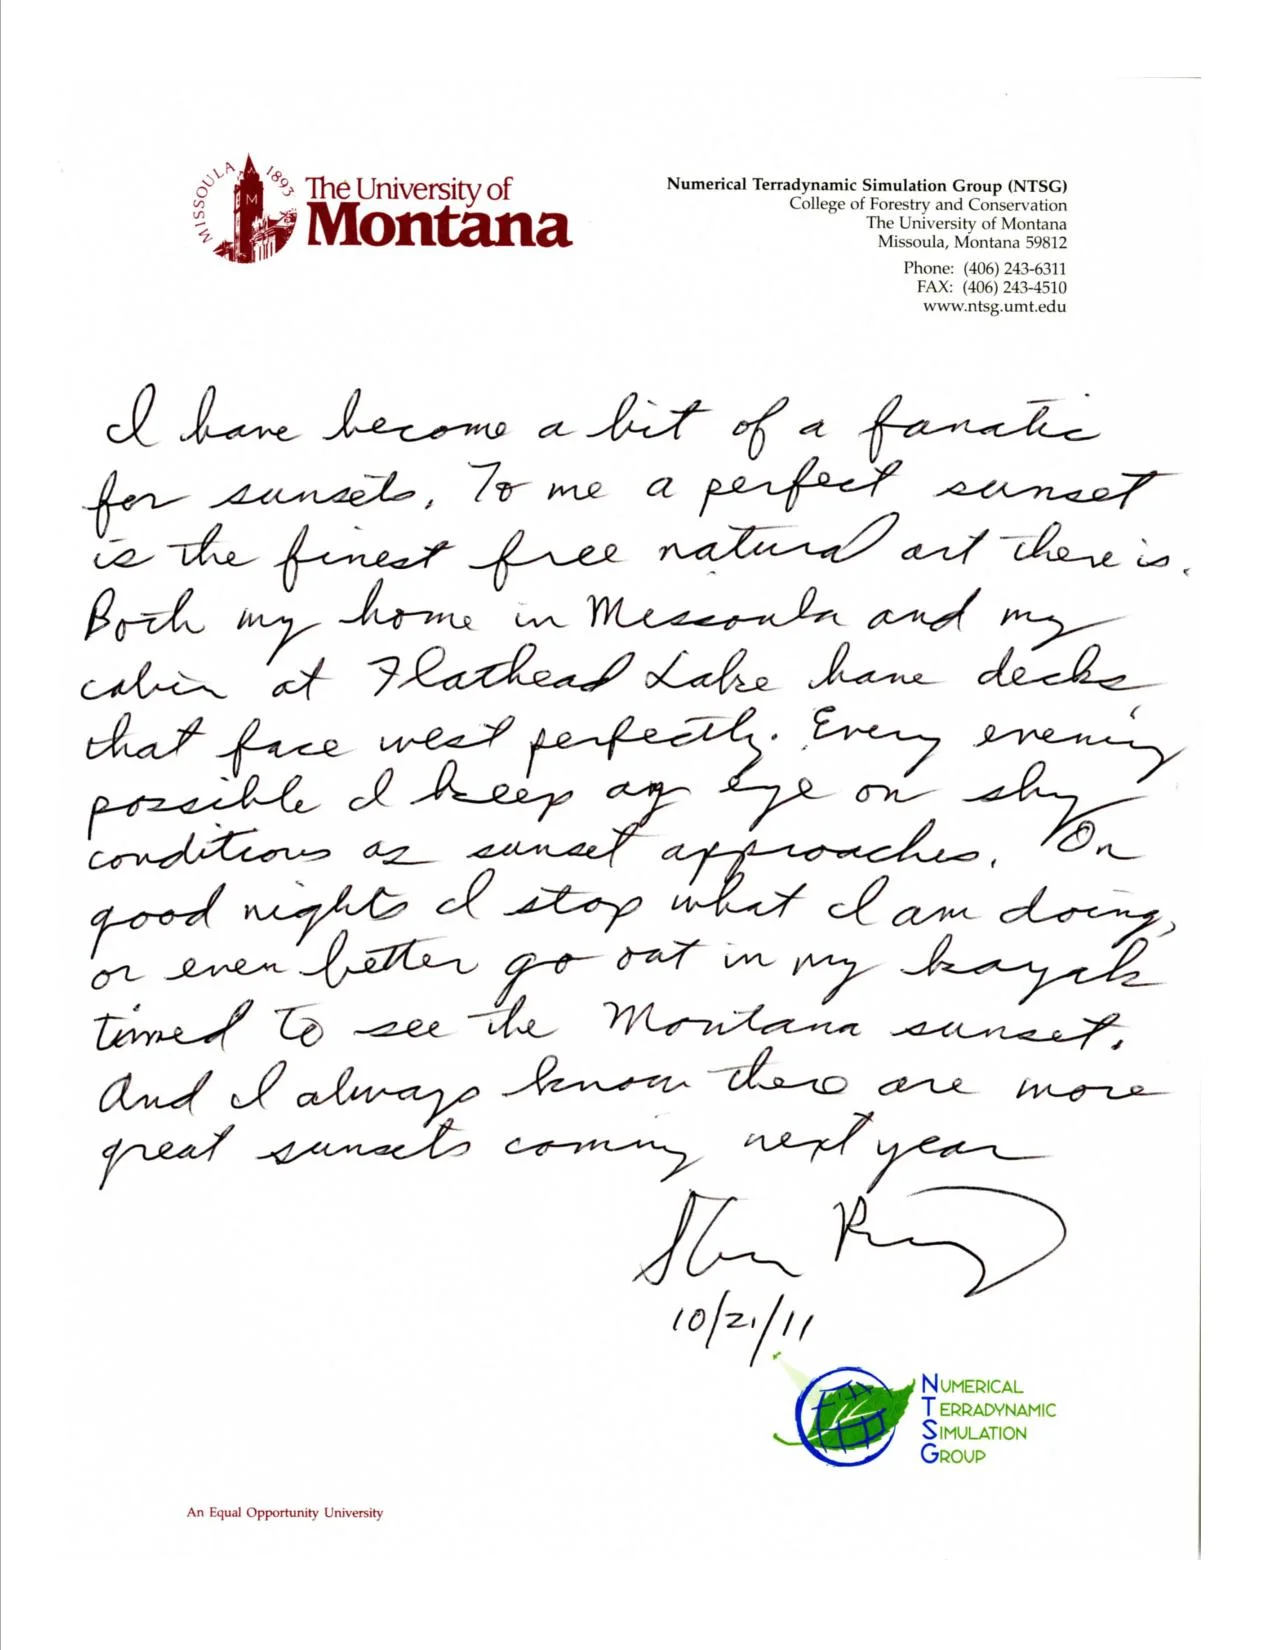 MISSOULA 1893
M
The University of
Montana
Numerical Terradynamic Simulation Group (NTSG)
College of Forestry and Conservation
The University of Montana
Missoula, Montana 59812
Phone: (406) 243-6311
FAX: (406) 243-4510
www.ntsg.umt.edu
I have become a bit of a fanatic
for sunsets. To me a perfect sunset
is the finest free natural art there is.
Both my home in Missoula and my
cabin at Flathead Lake have decks
that face west perfectly. Every evening
possible I keep an eye on sky
conditions as sunset approaches. On
good nights I stop what I am doing,
or even better go out in my kayak
timed to see the Montana sunset.
And I always know there are more
great sunsets coming next year
10/21/11
NUMERICAL
TERRADYNAMIC
SIMULATION
GROUP
An Equal Opportunity University